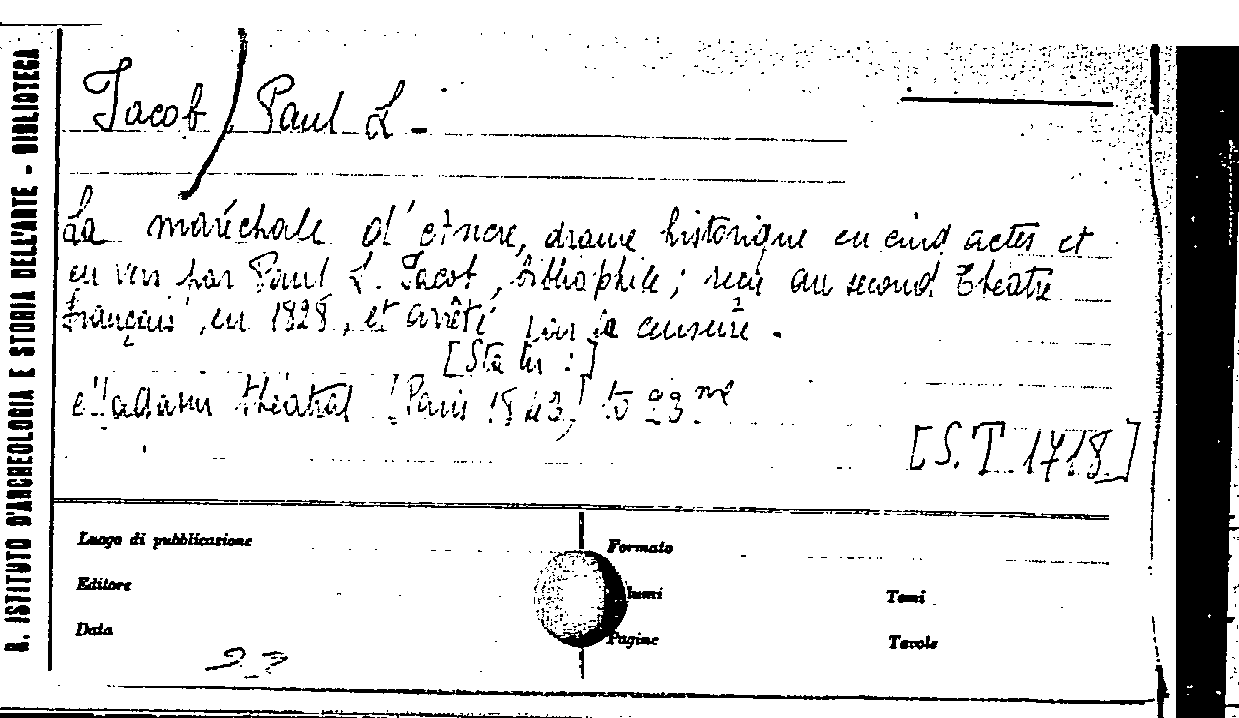 R. ISTITUTO D'ARCHEOLOGIA E STORIA DELL'ARTE - BIBLIOTECA
Jacob, Paul L.
La maréchale d'Ancre, drame historique en cinq actes et
en vers par Paul L. Jacob, bibliophile; reçu au second théatre
français, en 1828, et arrêté par la censure.
[Sta in:]
théatral (Paris 1843) to 23.me
[S.T. 1718]
Luogo di pubblicazione
Formato
Editore
Volumi
Tomi
Data
Pagine
Tavole